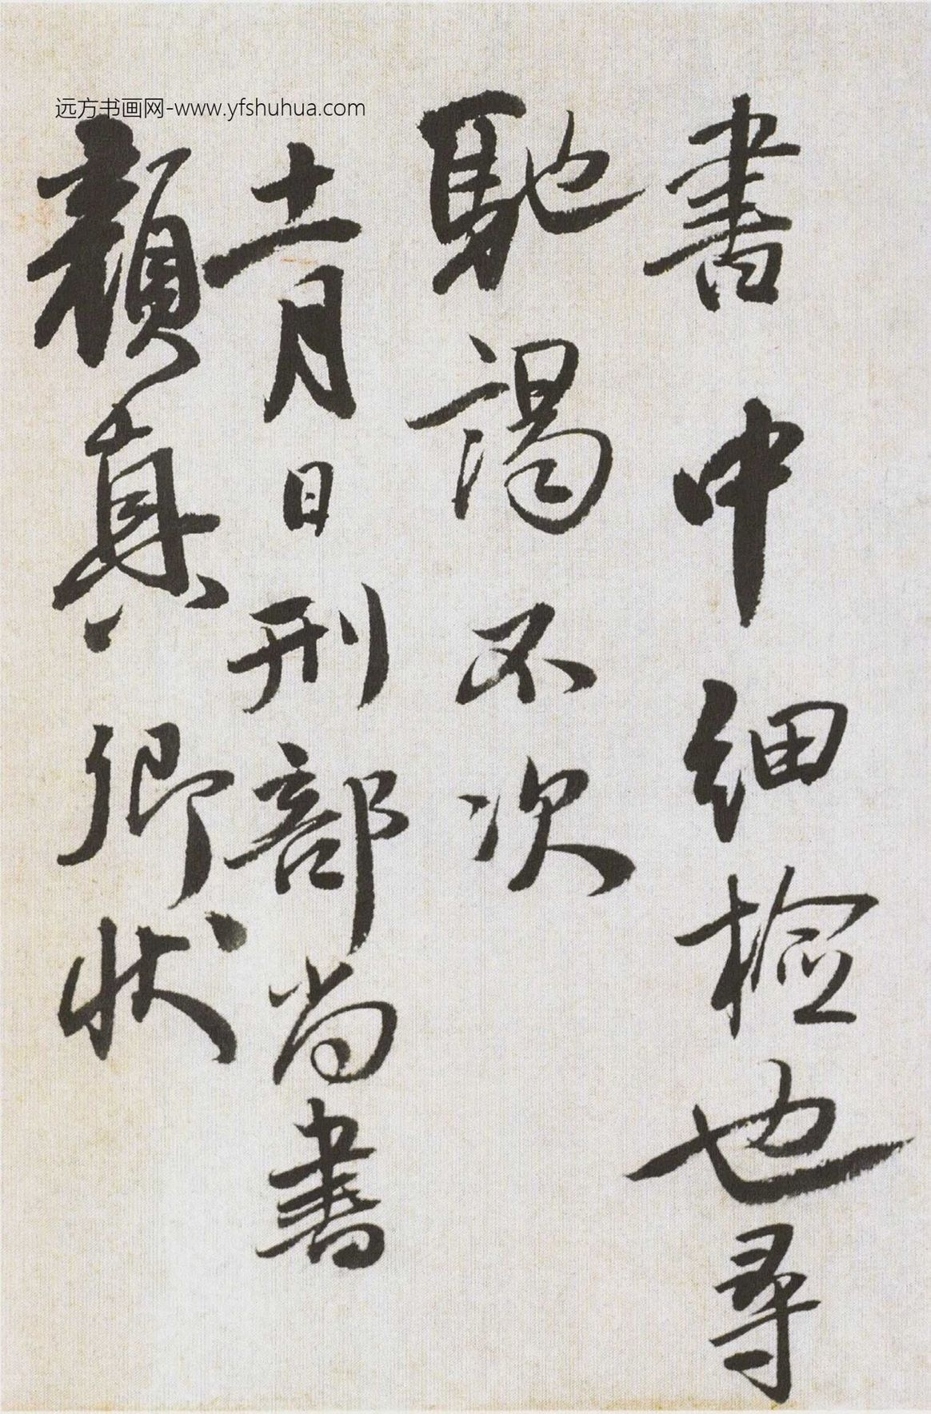 远方书画网-www.yfshuhua.com
書中細檢也尋
馳謁不次
十一月日刑部尚書
顏真卿狀